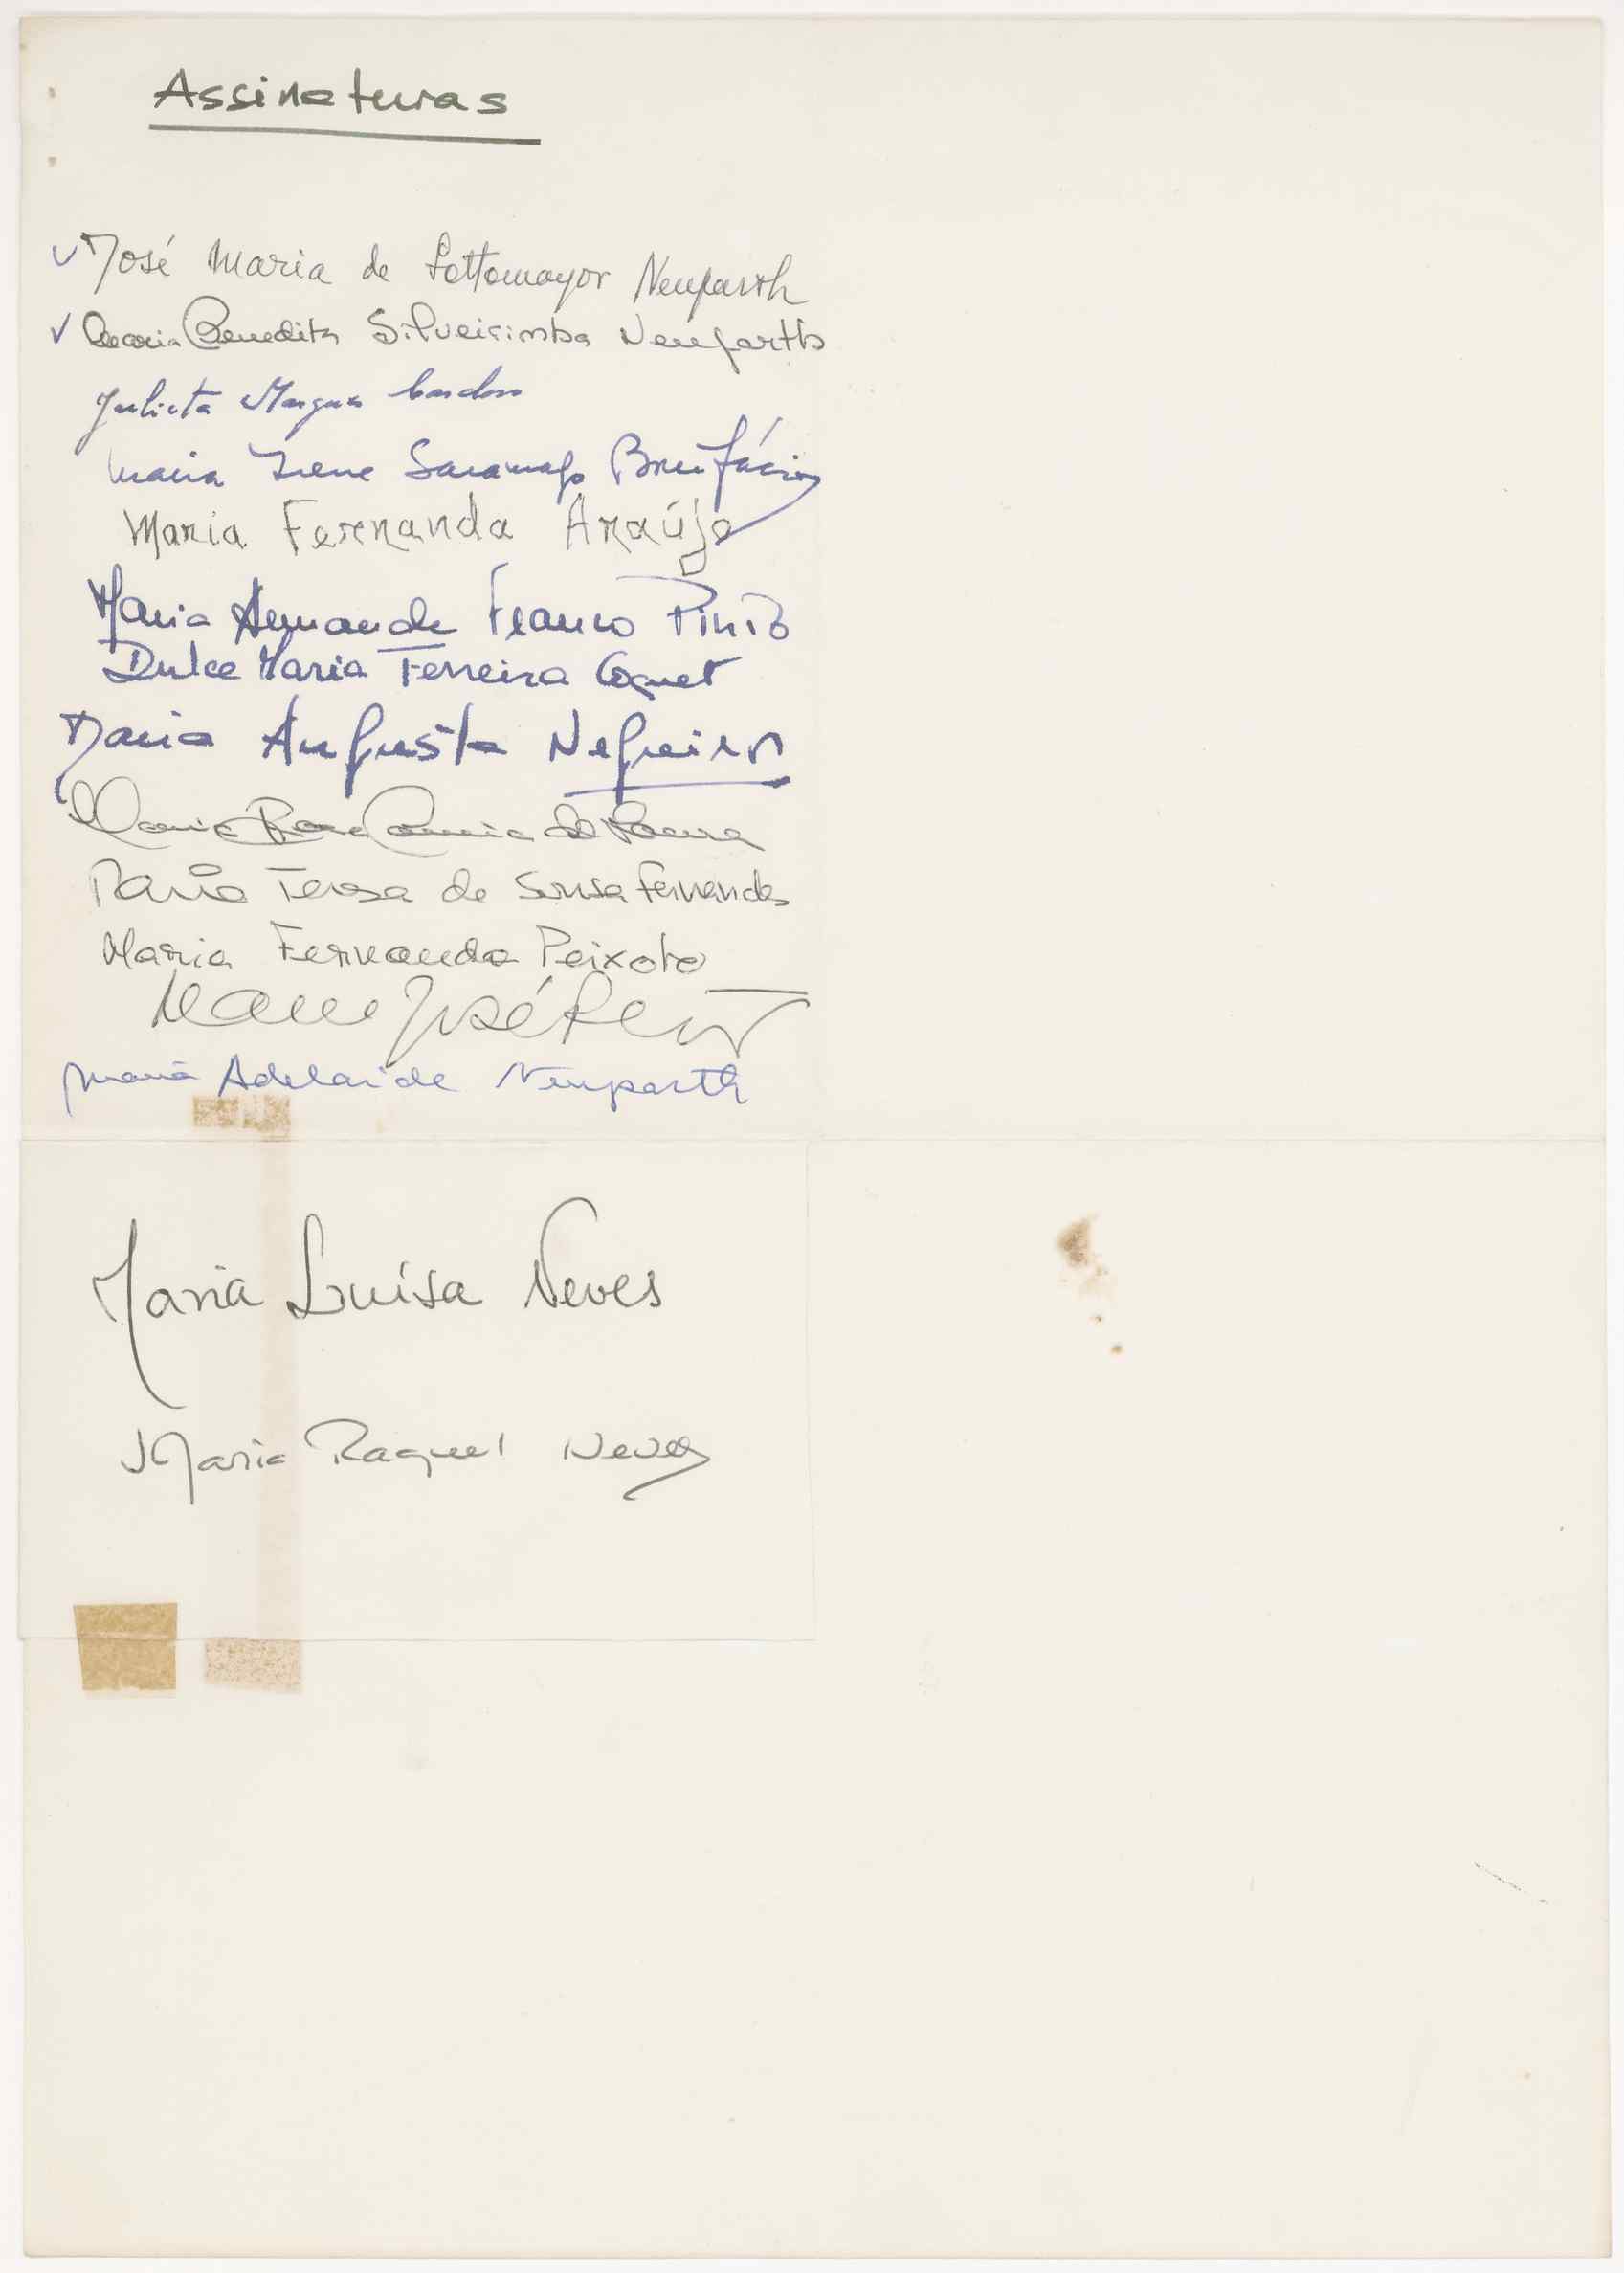 Assinaturas
José Maria de Sottomayor Neuparth
Maria Benedita Silveirinha Neuparth
Julieta Marques Cardoso
Maria Irene Saramago Bonifácio
Maria Fernanda Araújo
Maria Armanda Franco Pinto
Dulce Maria Ferreira Coquet
Maria Augusta Negueiros
Maria Rosa Correia de
Maria Teresa de Sousa Fernandes
Maria Fernanda Peixoto
Maria José
Maria Adelaide Neuparth
Maria Luísa Neves
Maria Raquel Neves